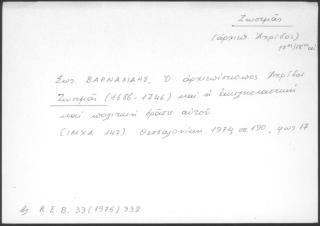 Ζωσιμᾶς
(ἀρχιεπ. Ἀχρίδος)
17ου/18ου αἰ.
Σωτ. ΒΑΡΝΑΛΙΔΗΣ, Ὁ ἀρχιεπίσκοπος Ἀχρίδος
Ζωσιμᾶς (1686-1746) καὶ ἡ ἐκκλησιαστικὴ
καὶ πολιτικὴ δρᾶσις αὐτοῦ
(ΙΜΧΑ 147) Θεσσαλονίκη 1974 σς 190,
R.E.B. 33 (1975) 332